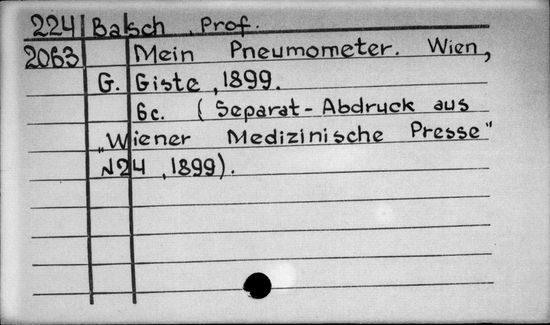 224 Balsch, Prof.
2063 Mein Pneumometer. Wien,
G. Giste, 1899.
6c. (Separat-Abdruck aus
„Wiener Medizinische Presse"
N24, 1899).